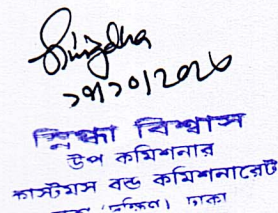 Snigdha
স্নিগ্ধা বিশ্বাস
উপ কমিশনার
কাস্টমস বন্ড কমিশনারেট
(দক্ষিণ) ঢাকা